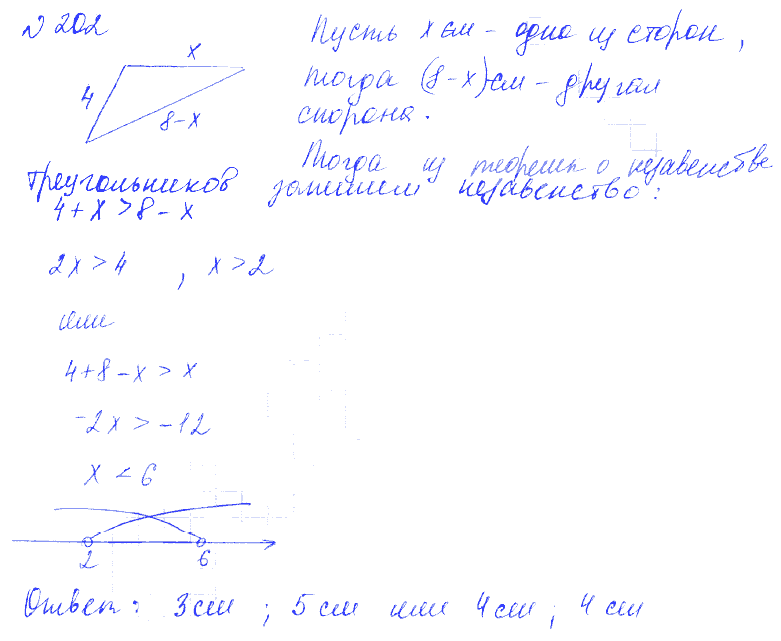 № 202
x
4
8-x
Пусть x см - одна из сторон,
тогда (8-x) см - другая
сторона.
Тогда из теоремы о неравенстве
треугольников запишем неравенство:
4+x>8-x
2x>4 , x>2
или
4+8-x>x
-2x>-12
x<6
2 6
Ответ: 3см ; 5 см или 4см ; 4 см